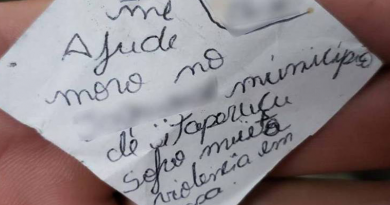 me
Ajude
moro no
município
dê iitaparuçu
sofro muito
violencia em